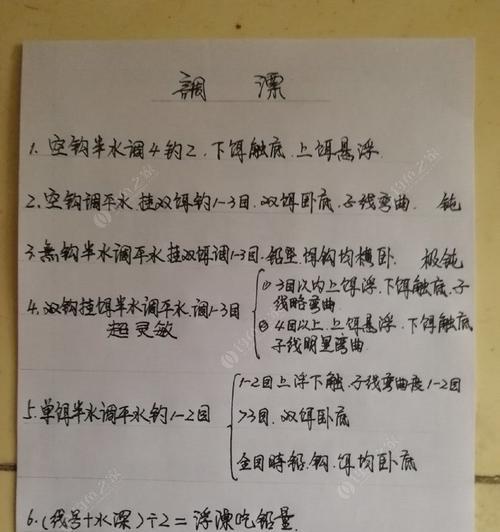 調 漂
1. 空钩半水调4钓2、下饵触底、上饵悬浮.
2. 空钩调平水 挂双饵钓1-3目. 双饵卧底、子线弯曲. 钝
3. 无钩半水调平水挂双饵调1-3目. 铅坠.饵钩均横卧. 极钝
4. 双钩挂饵半水调平水.调1-3目
超灵敏
① 3目以内上饵浮.下饵触底.子
线略弯曲
② 4目以上.上饵悬浮.下饵触底
子线明显弯曲.
5. 单饵半水调平水钓1-2目
1-2目上浮下触.子线弯曲度1-2目
>3目、双饵卧底
全目時铅、钩、饵均卧底
6. (线号+水深)÷2=浮漂吃铅量.
钓鱼之家